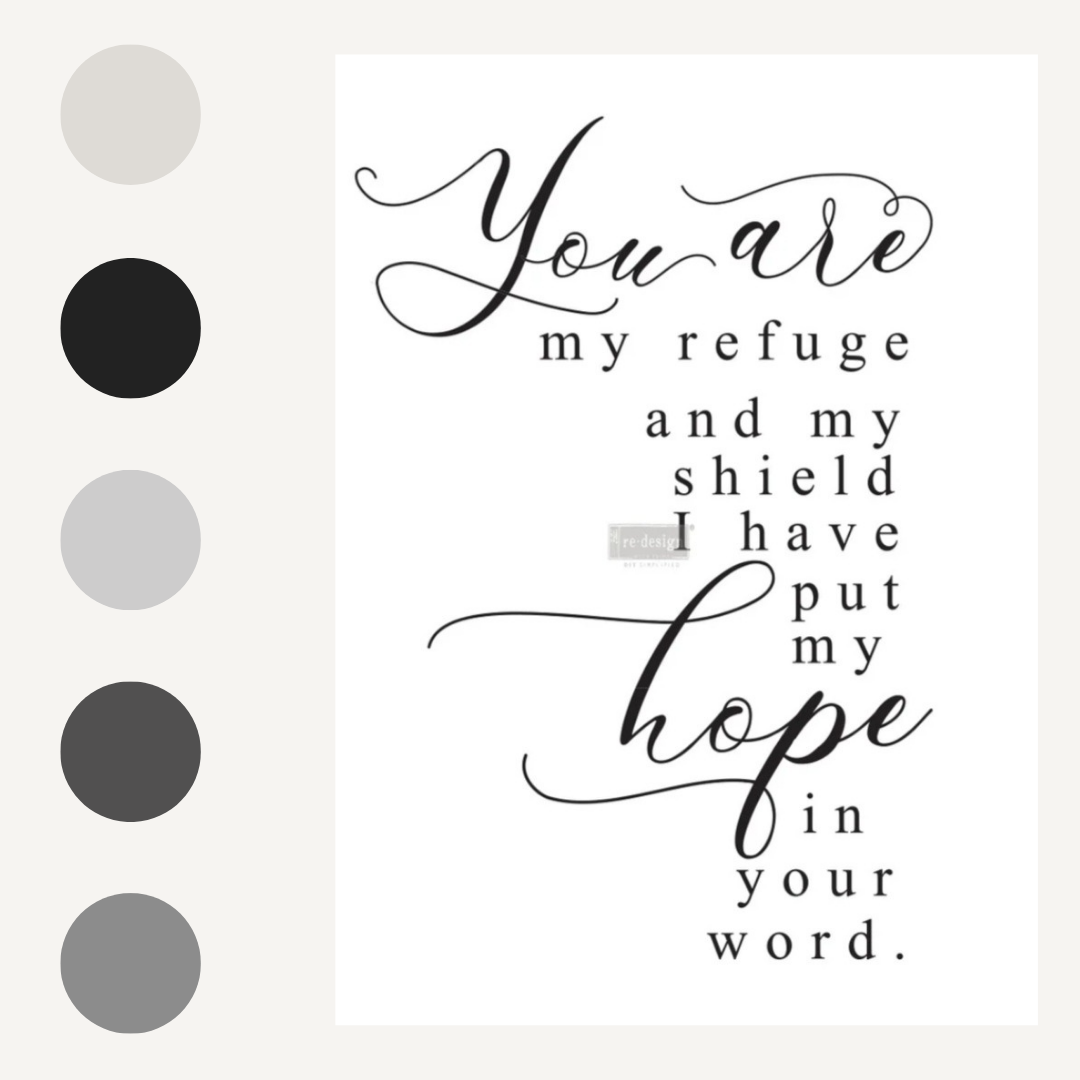 You are
my refuge
and my
shield
I have
re·design
put
my
hope
in
your
word.